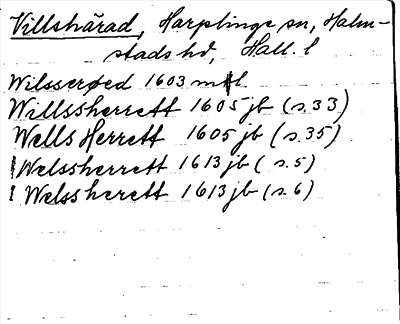 Villshärad, Harplinge sn, Halm-
stads hd, Hall. l
Wilsserøed 1603 mtl.
Willssherrett 1605 jb (s.33)
Wells Herrett 1605 jb (s.35)
! Welssherrett 1613 jb (s.5)
! Welssherett 1613 jb (s.6)